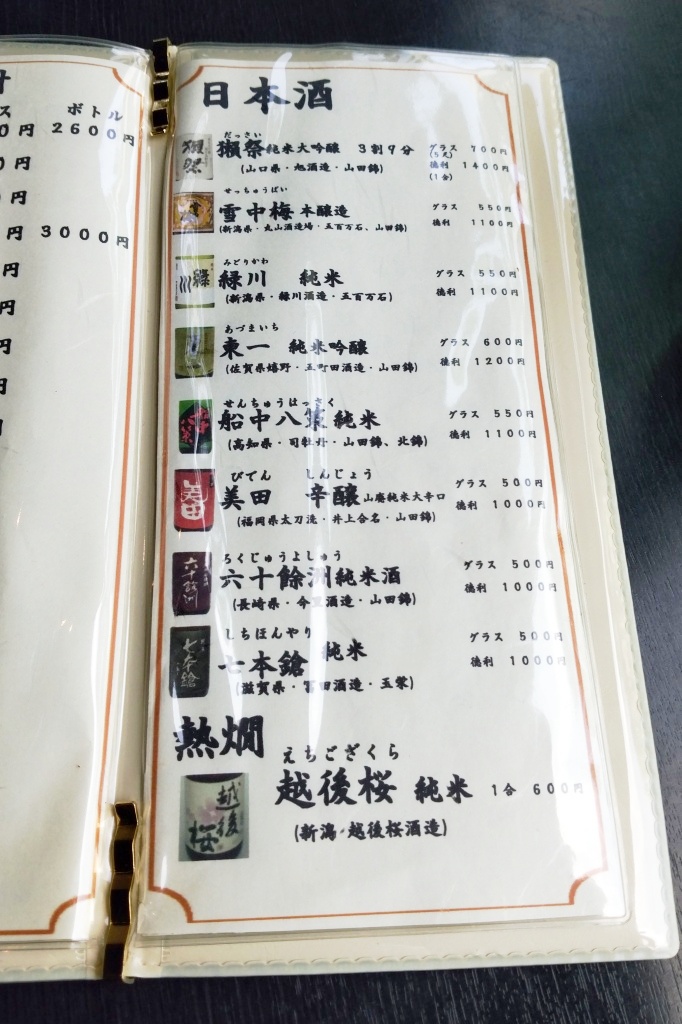 ボトル
0円 2600円
0円
0円
円 3000円
円
円
円
円
日本酒
だっさい
獺祭 純米大吟醸 3割9分 グラス 700円
(5尺)
(山口県・旭酒造・山田錦) 徳利 1400円
(1合)
せっちゅうばい
雪中梅 本醸造 グラス 550円
(新潟県・丸山酒造場・五百万石、山田錦) 徳利 1100円
みどりかわ
緑川 純米 グラス 550円
(新潟県・緑川酒造・五百万石) 徳利 1100円
あづまいち
東一 純米吟醸 グラス 600円
(佐賀県嬉野・五町田酒造・山田錦) 徳利 1200円
せんちゅうはっさく
船中八策 純米 グラス 550円
(高知県・司牡丹・山田錦、北錦) 徳利 1100円
びでん しんじょう
美田 辛醸 山廃純米大辛口 グラス 500円
(福岡県太刀洗・井上合名・山田錦) 徳利 1000円
ろくじゅうよしゅう
六十餘洲 純米酒 グラス 500円
(長崎県・今里酒造・山田錦) 徳利 1000円
しちほんやり
七本鎗 純米 グラス 500円
(滋賀県・冨田酒造・玉栄) 徳利 1000円
熱燗
えちござくら
越後桜 純米 1合 600円
(新潟・越後桜酒造)